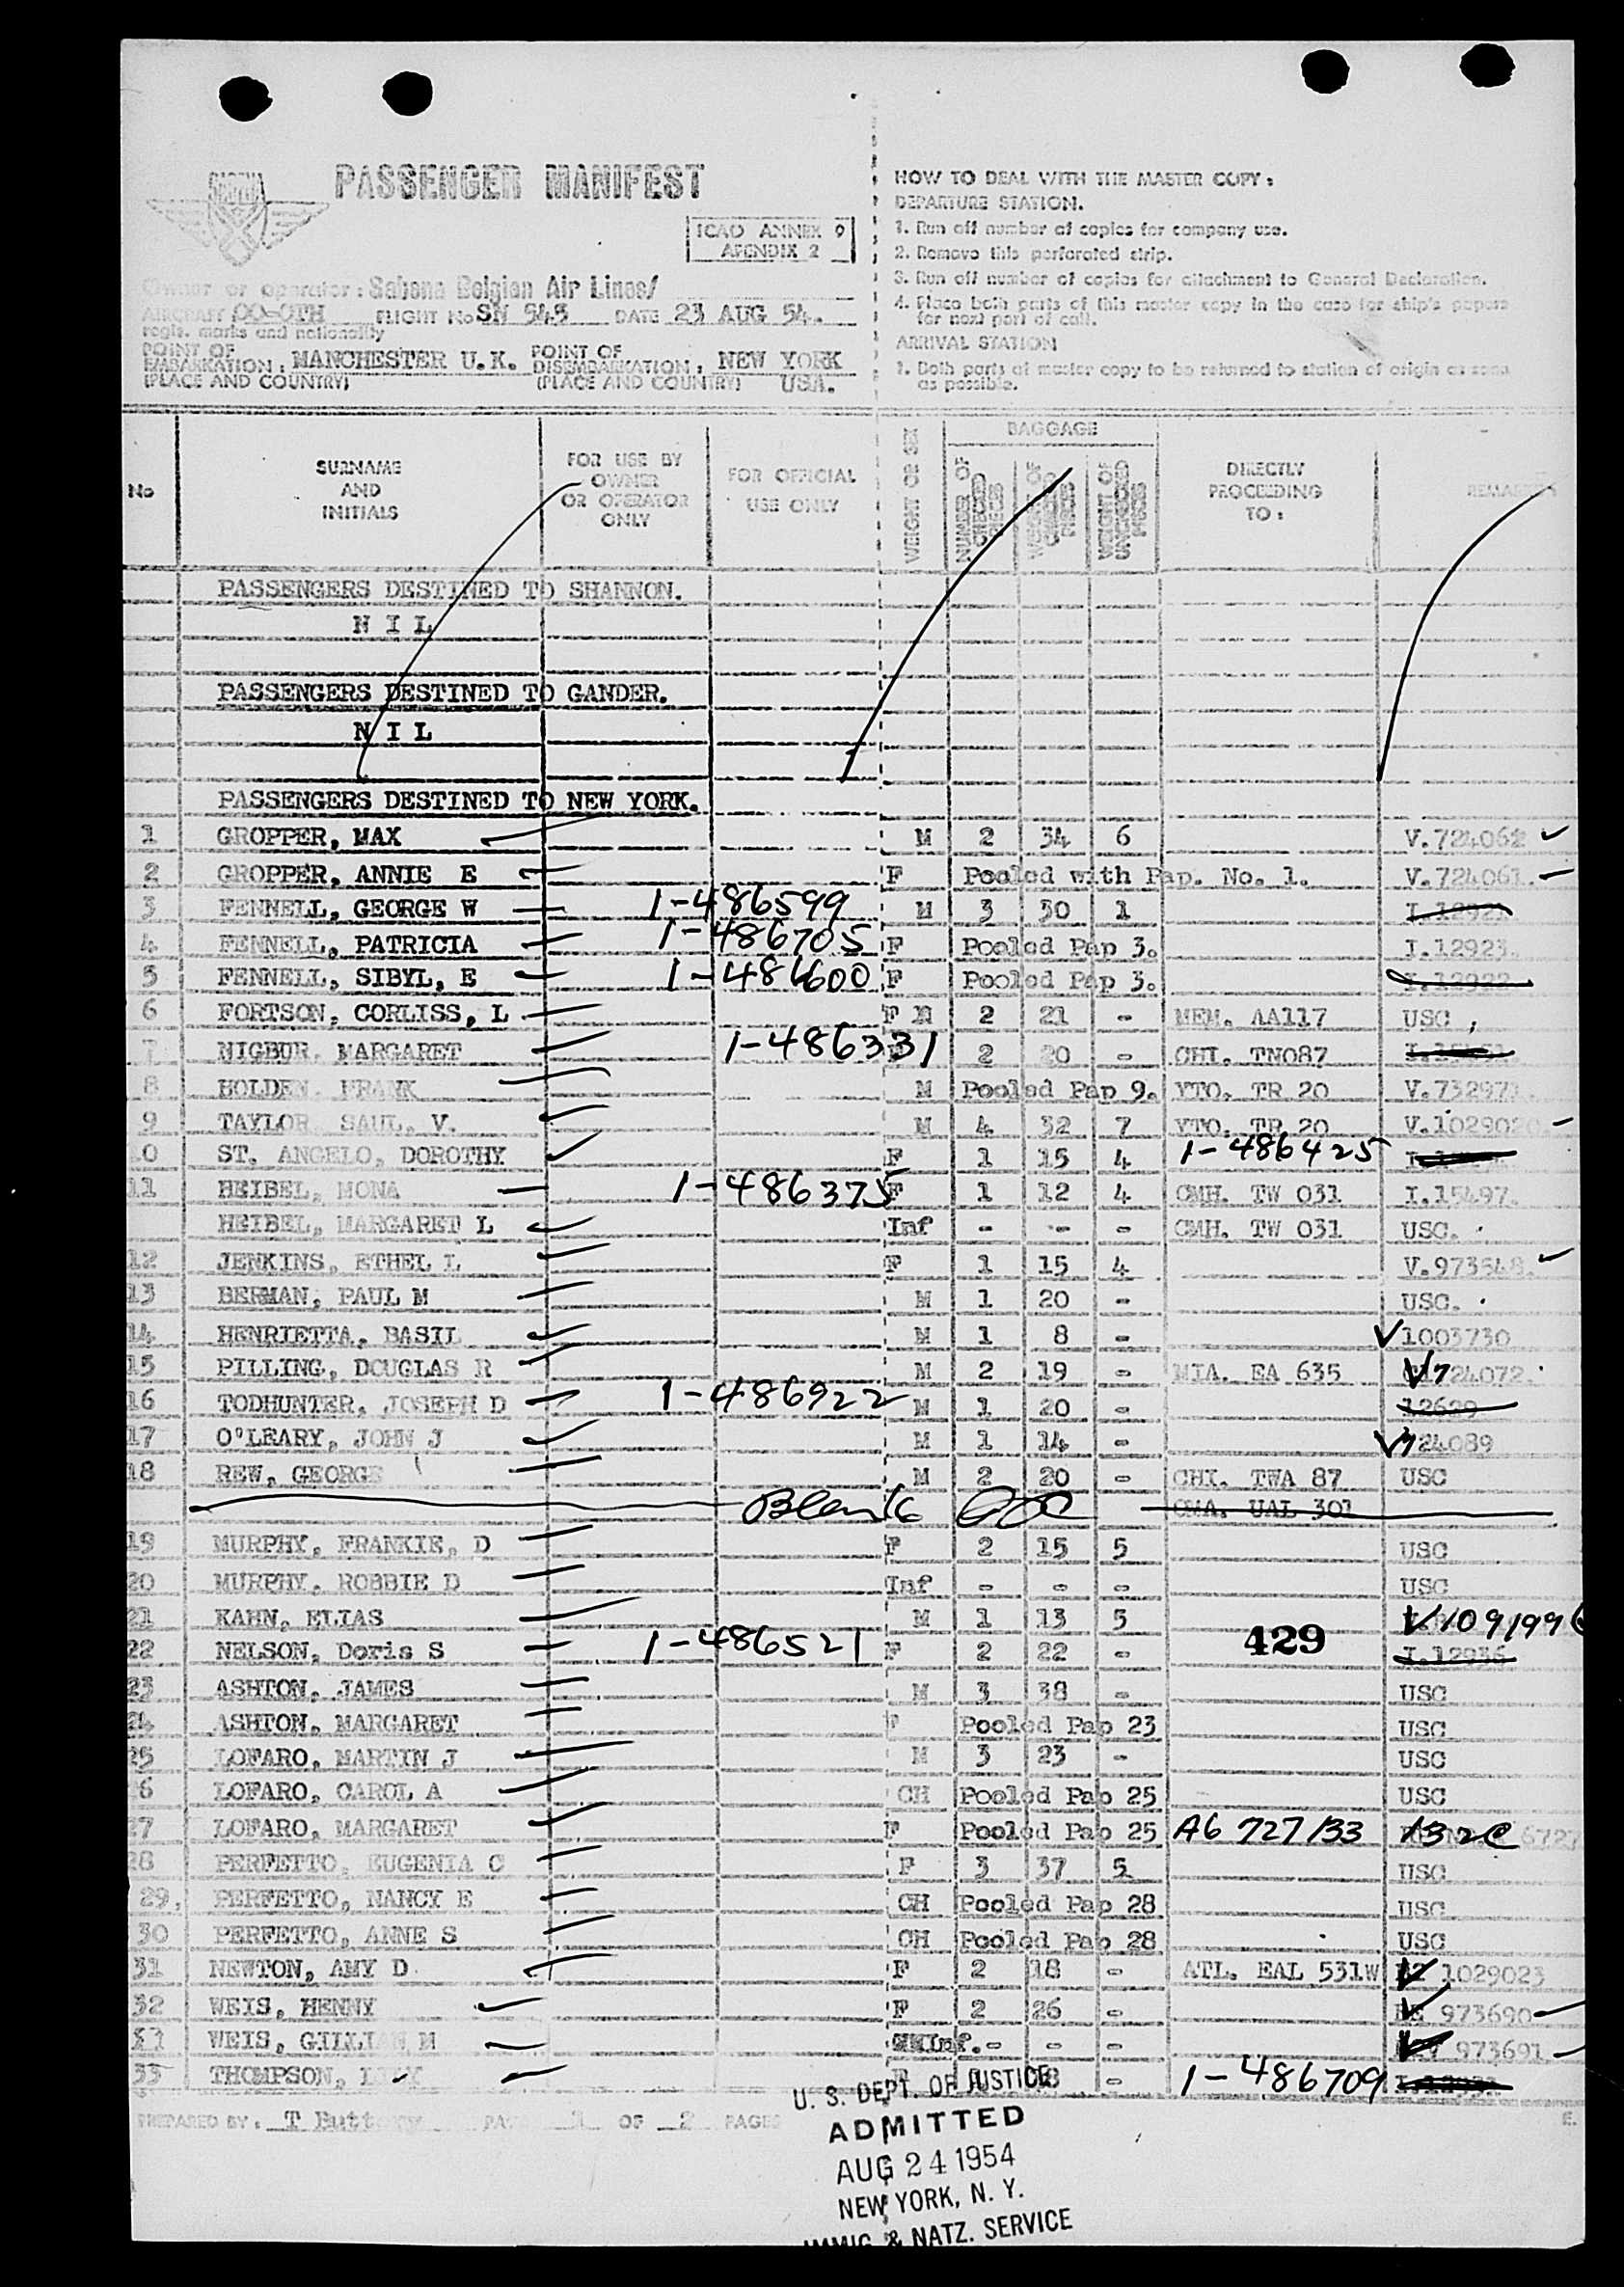 PASSENGER MANIFEST
ICAO ANNEX 9
APENDIX 2
Owner or operator: Sabena Belgian Air Lines/
AIRCRAFT OO-CTH FLIGHT No SN 545 DATE 23 AUG 54.
regis. marks and nationality
POINT OF EMBARKATION: MANCHESTER U.K. POINT OF DISEMBARKATION: NEW YORK
(PLACE AND COUNTRY) (PLACE AND COUNTRY) USA.
HOW TO DEAL WITH THE MASTER COPY:
DEPARTURE STATION.
1. Run off number of copies for company use.
2. Remove this perforated strip.
3. Run off number of copies for attachment to General Declaration.
4. Place both parts of this master copy in the case for ship's papers
for next port of call.
ARRIVAL STATION
1. Both parts of master copy to be returned to station of origin as soon
as possible.
No SURNAME AND INITIALS FOR USE BY OWNER OR OPERATOR ONLY FOR OFFICIAL USE ONLY WEIGHT OR SEX BAGGAGE NUMBER OF CHECKED PIECES WEIGHT OF CHECKED PIECES WEIGHT OF UNCHECKED PIECES DIRECTLY PROCEEDING TO: REMARKS
PASSENGERS DESTINED TO SHANNON.
N I L
PASSENGERS DESTINED TO GANDER.
N I L
PASSENGERS DESTINED TO NEW YORK.
1 GROPPER, MAX M 2 34 6 V.724062
2 GROPPER, ANNIE E F Pooled with Pap. No. 1. V.724061.
3 FENNELL, GEORGE W 1-486599 M 3 30 1
4 FENNELL, PATRICIA 1-486705 F Pooled Pap 3. I.12923.
5 FENNELL, SIBYL, E 1-486600 F Pooled Pap 3. I.12922
6 FORTSON, CORLISS, L F M 2 21 - MEM. AA117 USC
7 NIGBUR, MARGARET 1-486331 2 20 - CHI. TW087
8 HOLDEN, FRANK M Pooled Pap 9. YTO. TR 20
9 TAYLOR SAUL, V. M 4 32 7 YTO. TR 20 V.1029020.
10 ST. ANGELO, DOROTHY F 1 15 4 1-486425
11 HEIBEL, MONA 1-486375 F 1 12 4 CMH. TW 031 I.15497.
HEIBEL, MARGARET L Inf - - - CMH. TW 031 USC.
12 JENKINS, ETHEL L F 1 15 4 V.973548.
13 BERMAN, PAUL M M 1 20 - USC.
14 HENRIETTA, BASIL M 1 8 - V1003730
15 PILLING, DOUGLAS R M 2 19 - MIA. EA 635 V724072.
16 TODHUNTER, JOSEPH D 1-486922 M 1 20 - 12629
17 O'LEARY, JOHN J M 1 14 - V724089
18 REW, GEORGE M 2 20 - CHI. TWA 87 USC
Blank OMA. UAL 301
19 MURPHY, FRANKIE, D F 2 15 5 USC
20 MURPHY, ROBBIE D Inf - - - USC
21 KAHN, ELIAS M 1 13 5 V1091996
22 NELSON, Doris S 1-486521 F 2 22 - 429 I.12936
23 ASHTON, JAMES M 3 38 - USC
24 ASHTON, MARGARET F Pooled Pap 23 USC
25 LOFARO, MARTIN J M 3 23 - USC
26 LOFARO, CAROL A CH Pooled Pap 25 USC
27 LOFARO, MARGARET F Pooled Pap 25 A6 727 133
28 PERFETTO, EUGENIA C F 3 37 5 USC
29. PERFETTO, NANCY E CH Pooled Pap 28 USC
30 PERFETTO, ANNE S CH Pooled Pap 28 USC
31 NEWTON, AMY D F 2 18 - ATL. EAL 531W 1029023
32 WEIS, HENNY F 2 26 - 973690
WEIS, GILLIAN M Inf. - - - 973691
33 THOMPSON, - 1-486709
PREPARED BY: T PAGE 1 OF 2 PAGES
U. S. DEPT. OF JUSTICE
ADMITTED
AUG 24 1954
NEW YORK, N. Y.
IMMIG. & NATZ. SERVICE